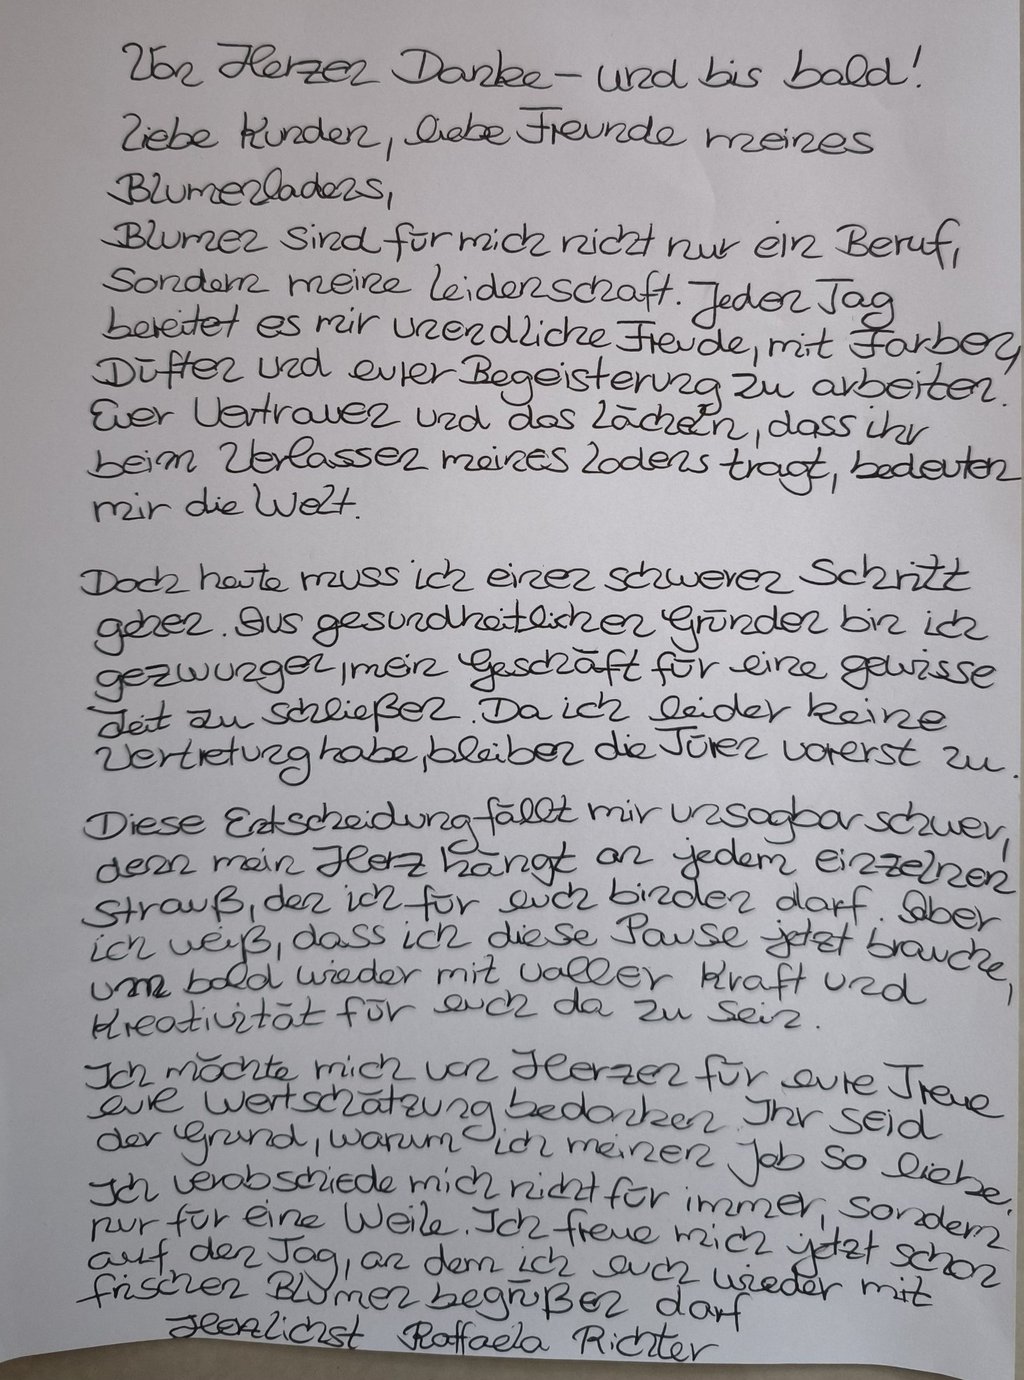 Von Herzen Danke – und bis bald!
Liebe Kunden, liebe Freunde meines
Blumenladens,
Blumen sind für mich nicht nur ein Beruf,
sondern meine Leidenschaft. Jeden Tag
bereitet es mir unendliche Freude, mit Farben,
Düften und eurer Begeisterung zu arbeiten.
Euer Vertrauen und das Lächeln, dass ihr
beim Verlassen meines Ladens tragt, bedeuten
mir die Welt.
Doch heute muss ich einen schweren Schritt
gehen. Aus gesundheitlichen Gründen bin ich
gezwungen, mein Geschäft für eine gewisse
Zeit zu schließen. Da ich leider keine
Vertretung habe, bleiben die Türen vorerst zu.
Diese Entscheidung fällt mir unsagbar schwer,
denn mein Herz hängt an jedem einzelnen
Strauß, den ich für euch binden darf. Aber
ich weiß, dass ich diese Pause jetzt brauche,
um bald wieder mit voller Kraft und
Kreativität für euch da zu sein.
Ich möchte mich von Herzen für eure Treue
eure Wertschätzung bedanken. Ihr seid
der Grund, warum ich meinen Job so liebe.
Ich verabschiede mich nicht für immer, sondern
nur für eine Weile. Ich freue mich jetzt schon
auf den Tag, an dem ich euch wieder mit
frischen Blumen begrüßen darf
Herzlichst Raffaela Richter